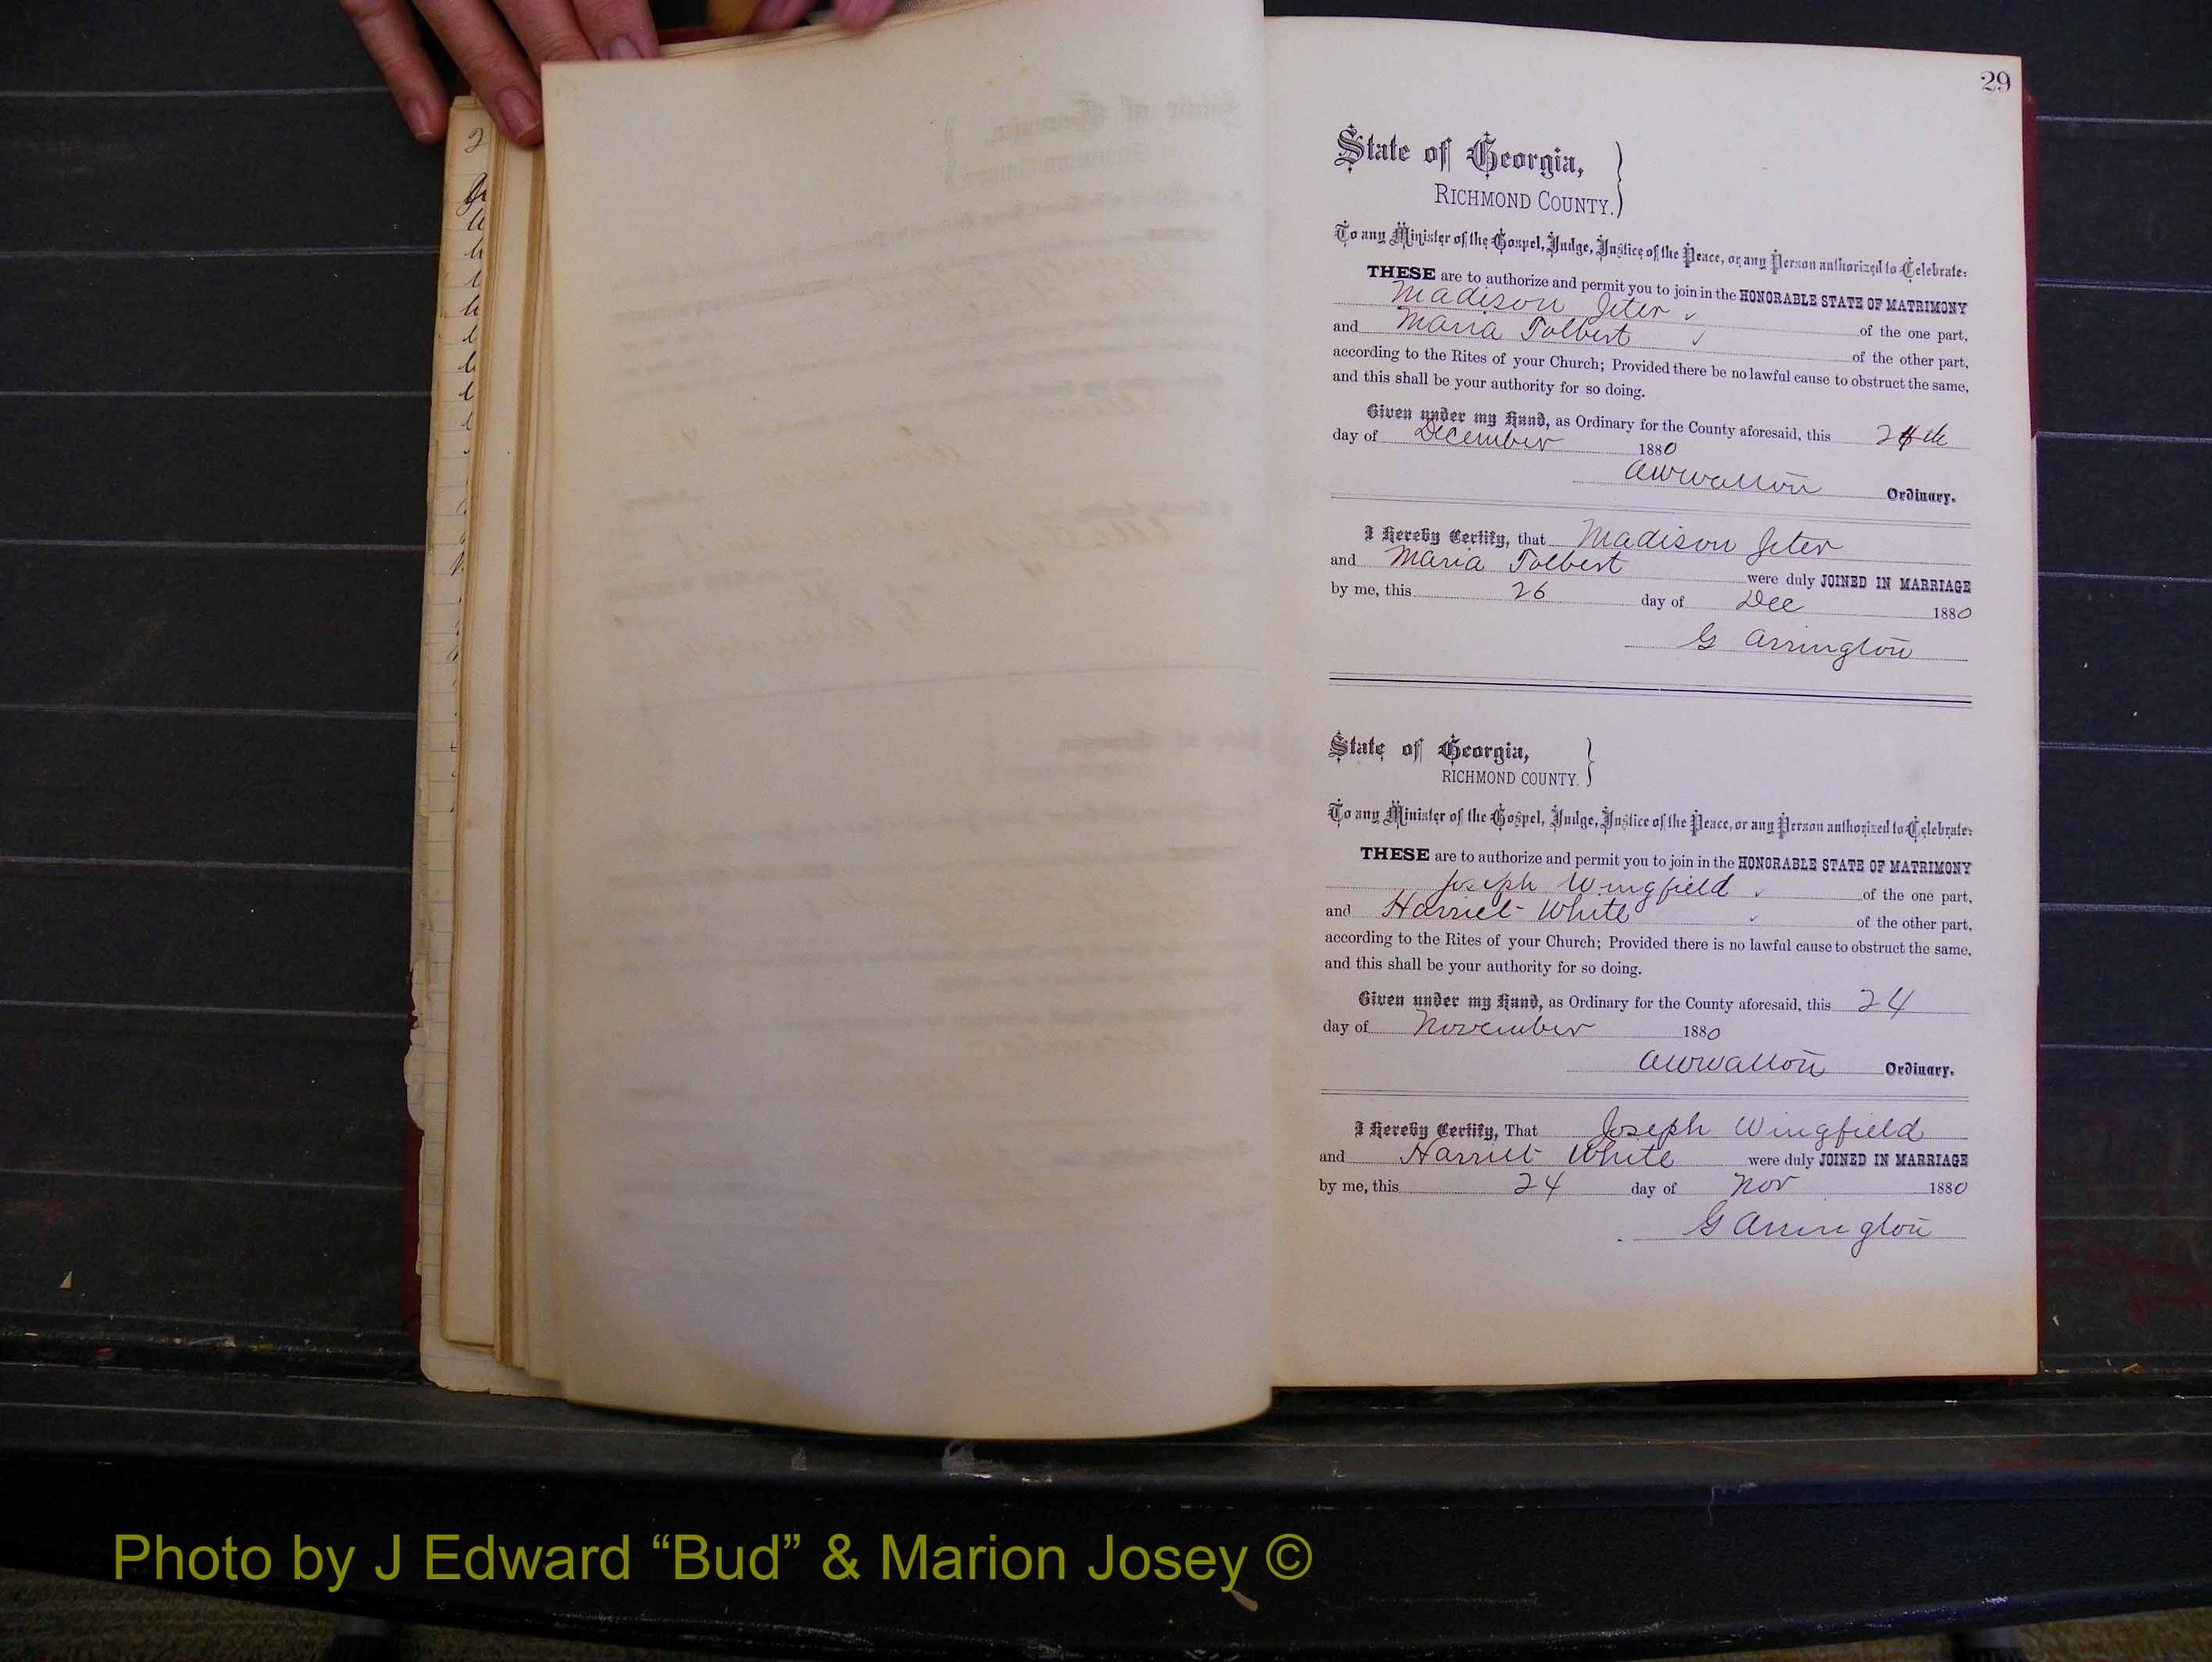 29
State of Georgia,
RICHMOND COUNTY.
To any Minister of the Gospel, Judge, Justice of the Peace, or any Person authorized to Celebrate:
THESE are to authorize and permit you to join in the HONORABLE STATE OF MATRIMONY
Madison Jeter of the one part,
and Maria Tolbert of the other part,
according to the Rites of your Church; Provided there be no lawful cause to obstruct the same,
and this shall be your authority for so doing.
Given under my Hand, as Ordinary for the County aforesaid, this
day of December 1880
Ordinary.
I Hereby Certify, that Madison Jeter
and Maria Tolbert were duly JOINED IN MARRIAGE
by me, this 26 day of Dec 1880
G Arrington
State of Georgia,
RICHMOND COUNTY.
To any Minister of the Gospel, Judge, Justice of the Peace, or any Person authorized to Celebrate:
THESE are to authorize and permit you to join in the HONORABLE STATE OF MATRIMONY
Joseph Wingfield of the one part,
and Harriet White of the other part,
according to the Rites of your Church; Provided there is no lawful cause to obstruct the same,
and this shall be your authority for so doing.
Given under my Hand, as Ordinary for the County aforesaid, this 24
day of November 1880
Ordinary.
I Hereby Certify, That Joseph Wingfield
and Harriet White were duly JOINED IN MARRIAGE
by me, this 24 day of Nov 1880
G Arrington
Photo by J Edward “Bud” & Marion Josey ©